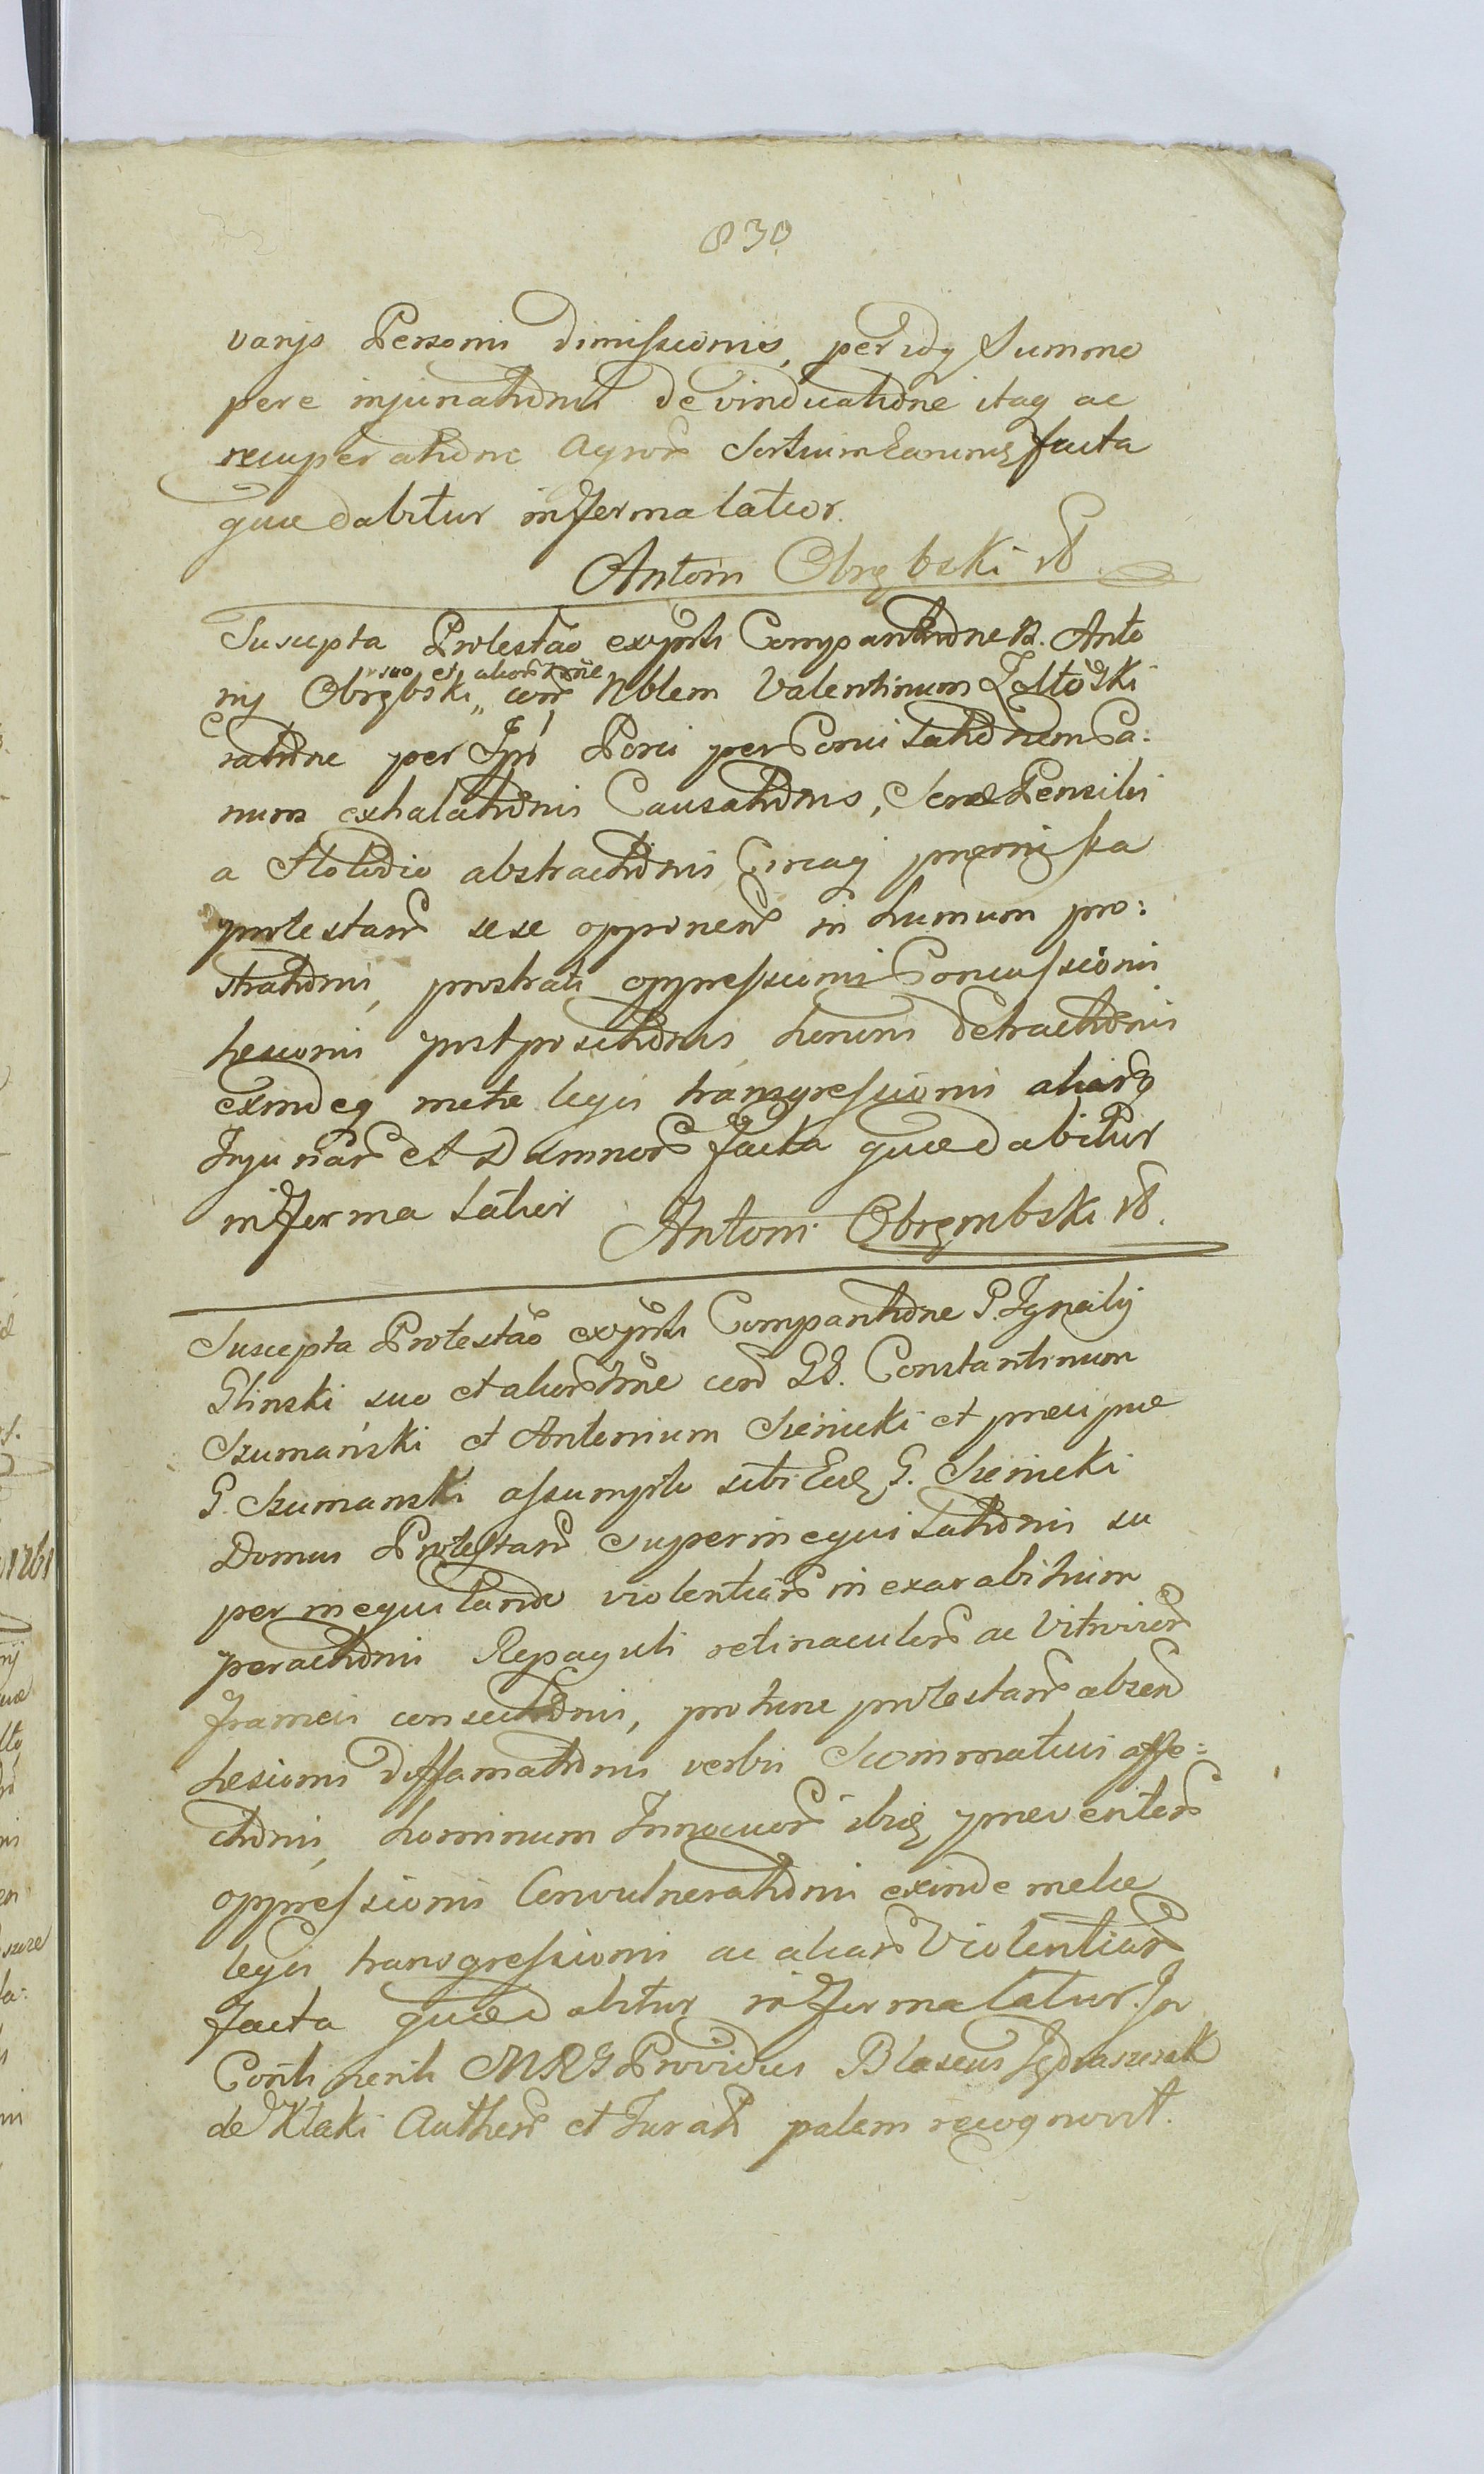 830
varijs Personis dimissionis, per idq Summo
pere injuriationis de vindicatione itaq ac
recuperatione Agror Sortium Earumq facta
quae dabitur in Forma latior.
Antoni Obrębski
Suscepta Protestao ex parti Comparitione N. Anto
nij Obrębski suo et alior noie con Nblem Valentinum Żołtoski
ratione per Ipsi Porci per Comitationem Ca:
num exhalationis Causationis, Serae Pensilis
a Stolidio abstractionis Circaq praemissa
protestan sese opponen in humum pro:
strationis, prostrati oppressionis Concussionis
Lesionis postpositionis honoris detractionis
exindeq metae legis transgressionis aliar
Injuriar et Damnor facta quae dabitur
in Forma latior Antoni Obrębmbski
Suscepta Protestao ex parti Comparitione G. Ignatij
Glinski suo et alior noie con GG. Constantinum
Szumański et Antonium Sienicki et praecipue
G. Szumanski assumpto sibi Eodq G. Sienicki
Domus Protestan superinequitationis su
perinequitando violentiar in exarabitrium
peractionis Repaguli retinaculor ac Vitrivior
Frameis consectionis, pro tunc protestan absen
Lesionis diffamationis verbis Scommaticis affe:
ctionis, hominum Innocuor ibiq praeventor
oppressionis Convulnerationis exinde metae
legis transgressionis ac aliar Violentiar
facta quae dabitur in Forma latior. In
Conti nenti MRG Providus Blasius Jędraszczak
de Kłaki Authen et Jurat palam recognovit.